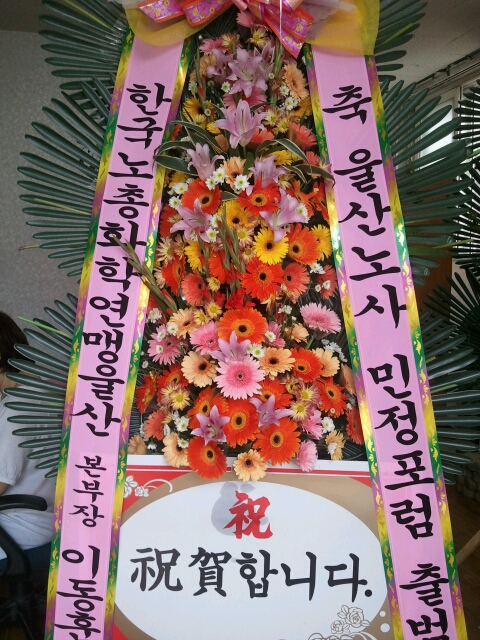 축 울산노사 민정포럼 출범
한국노총화학연맹울산 본부장 이동훈
祝
祝賀합니다.